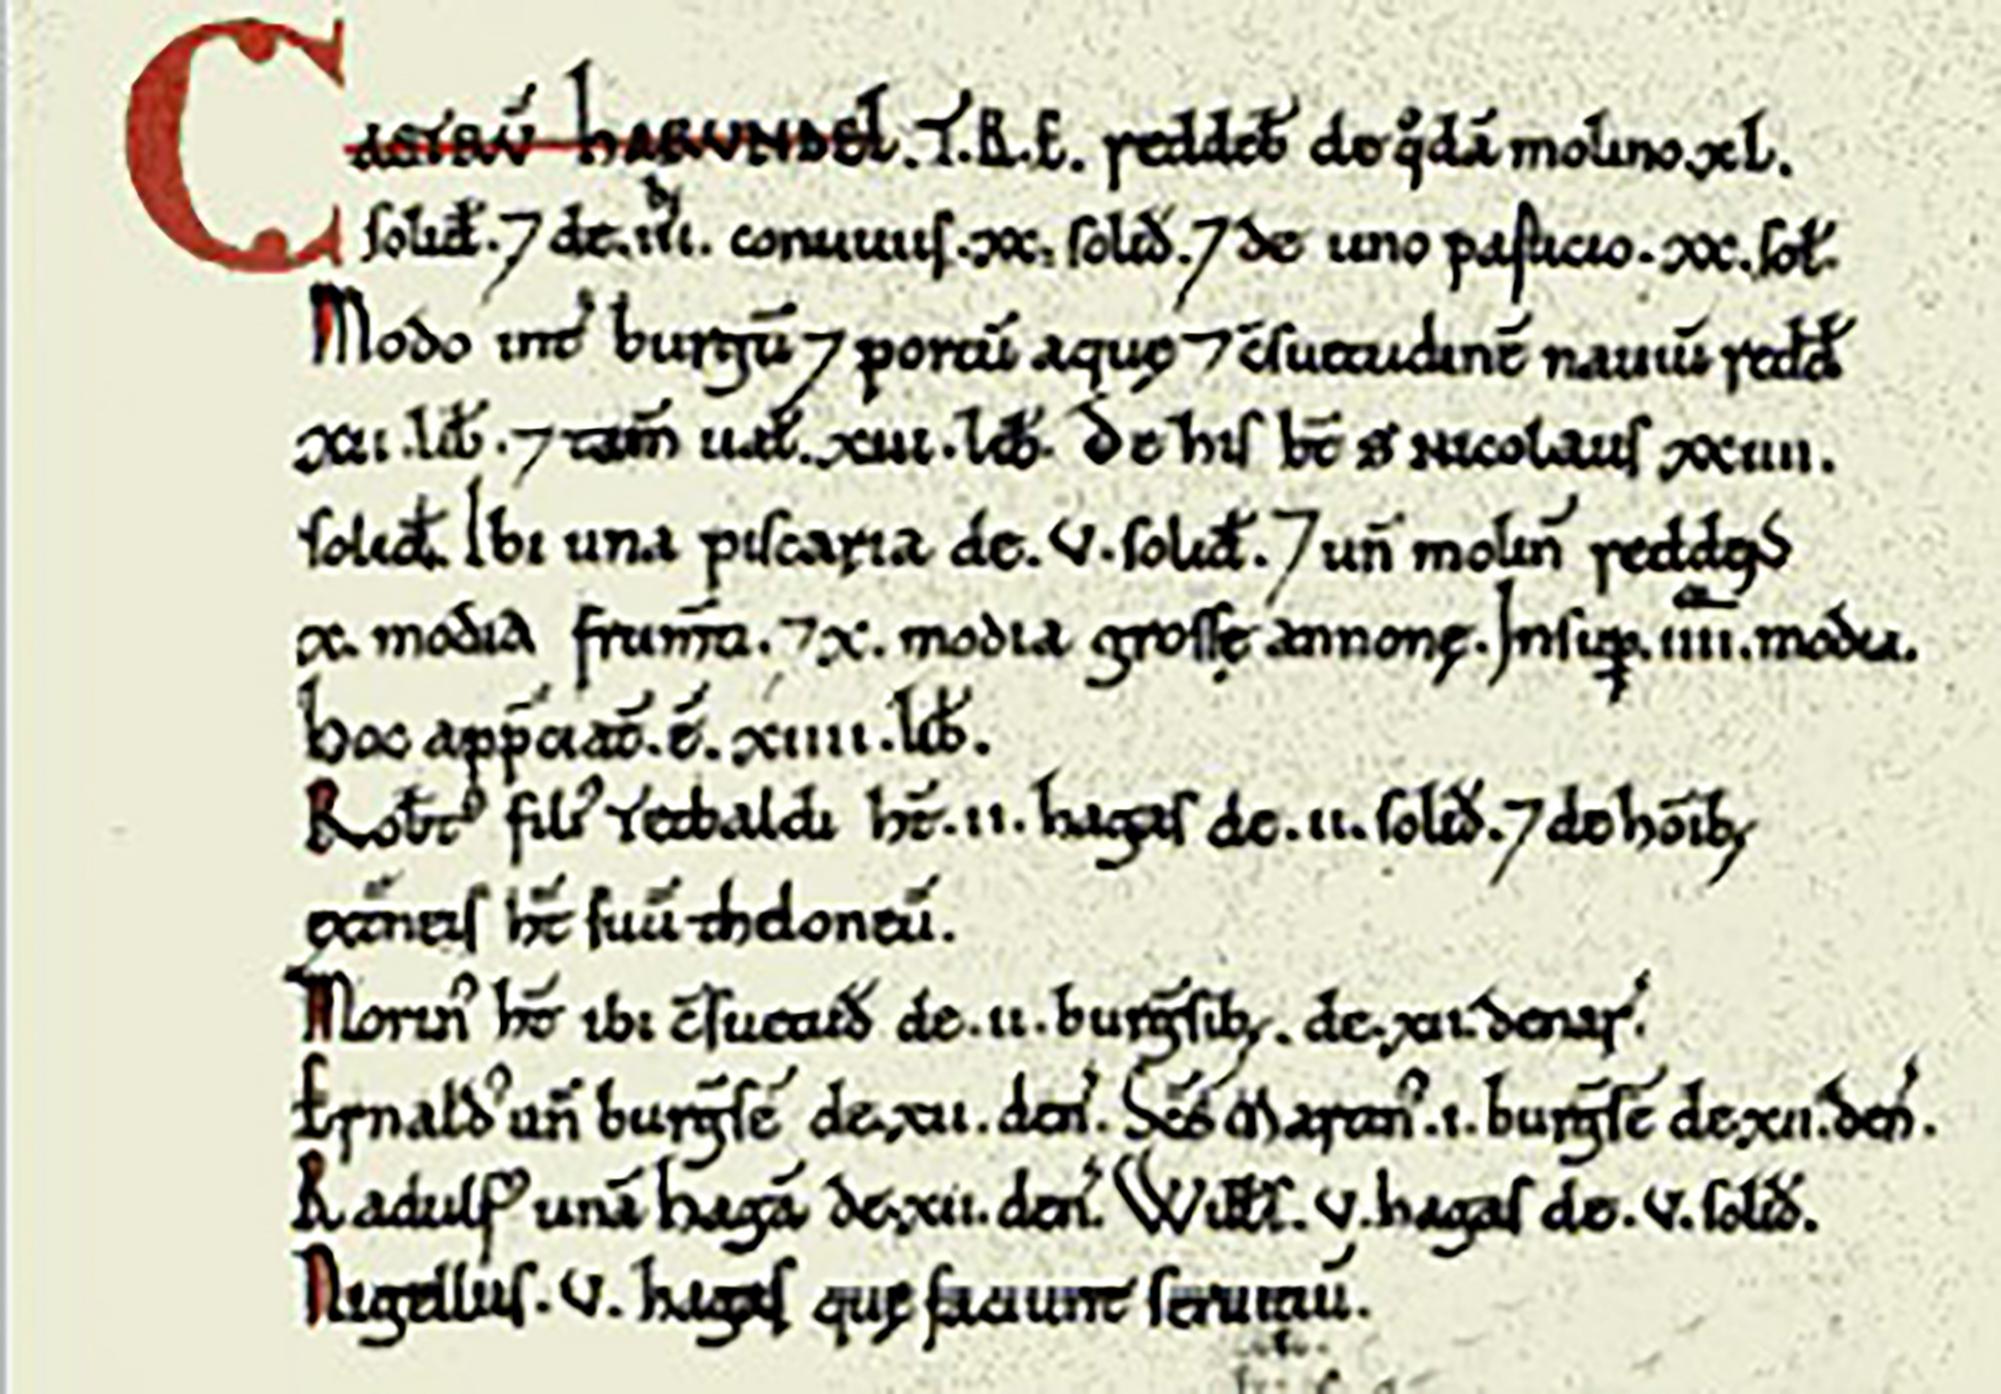 CASTRU̅ HARUNDEL. T.R.E. reddeb̅ de qͦdā molino xl.
solid̅. ⁊ de .iii. conuiuiis .xx. solid̅. ⁊ de uno pasticio .xx. sol̅.
Modo int̅ burgū ⁊ portū aquę ⁊ c̅suetudinē nauiū redd̅
xii. lib̅. ⁊ tam̅ ual̅. xiii. lib̅. De his ht̅ S NICOLAUS xxiiii.
solid̅. Ibi una piscaria de .v. solid̅. ⁊ un̅ molin̅ reddeȝs
x. modia frum̅ti. ⁊ x. modia grossę annonę. Insup̱ .iiii. modia.
hoc app̅ciat̅. e̅. xiiii. lib̅.
Rob̅tꝰ filiꝰ Tetbaldi ht̅ .ii. hagas de .ii. solid̅. ⁊ de ho̅ib;
extraneis ht̅ suū theloneū.
Morinꝰ ht̅ ibi c̅suetud̅ de .ii. burg̅sib; . de .xii. denar̅.
Ernaldꝰ un̅ burg̅sē de .xii. den̅. S̅cs Martinꝰ .i. burg̅sē de .xii. den̅.
Radulfꝰ unā hagā de .xii. den̅. Will̅s .v. hagas de .v. solid̅.
Nigellus .v. hagas quę faciunt seruitiū.